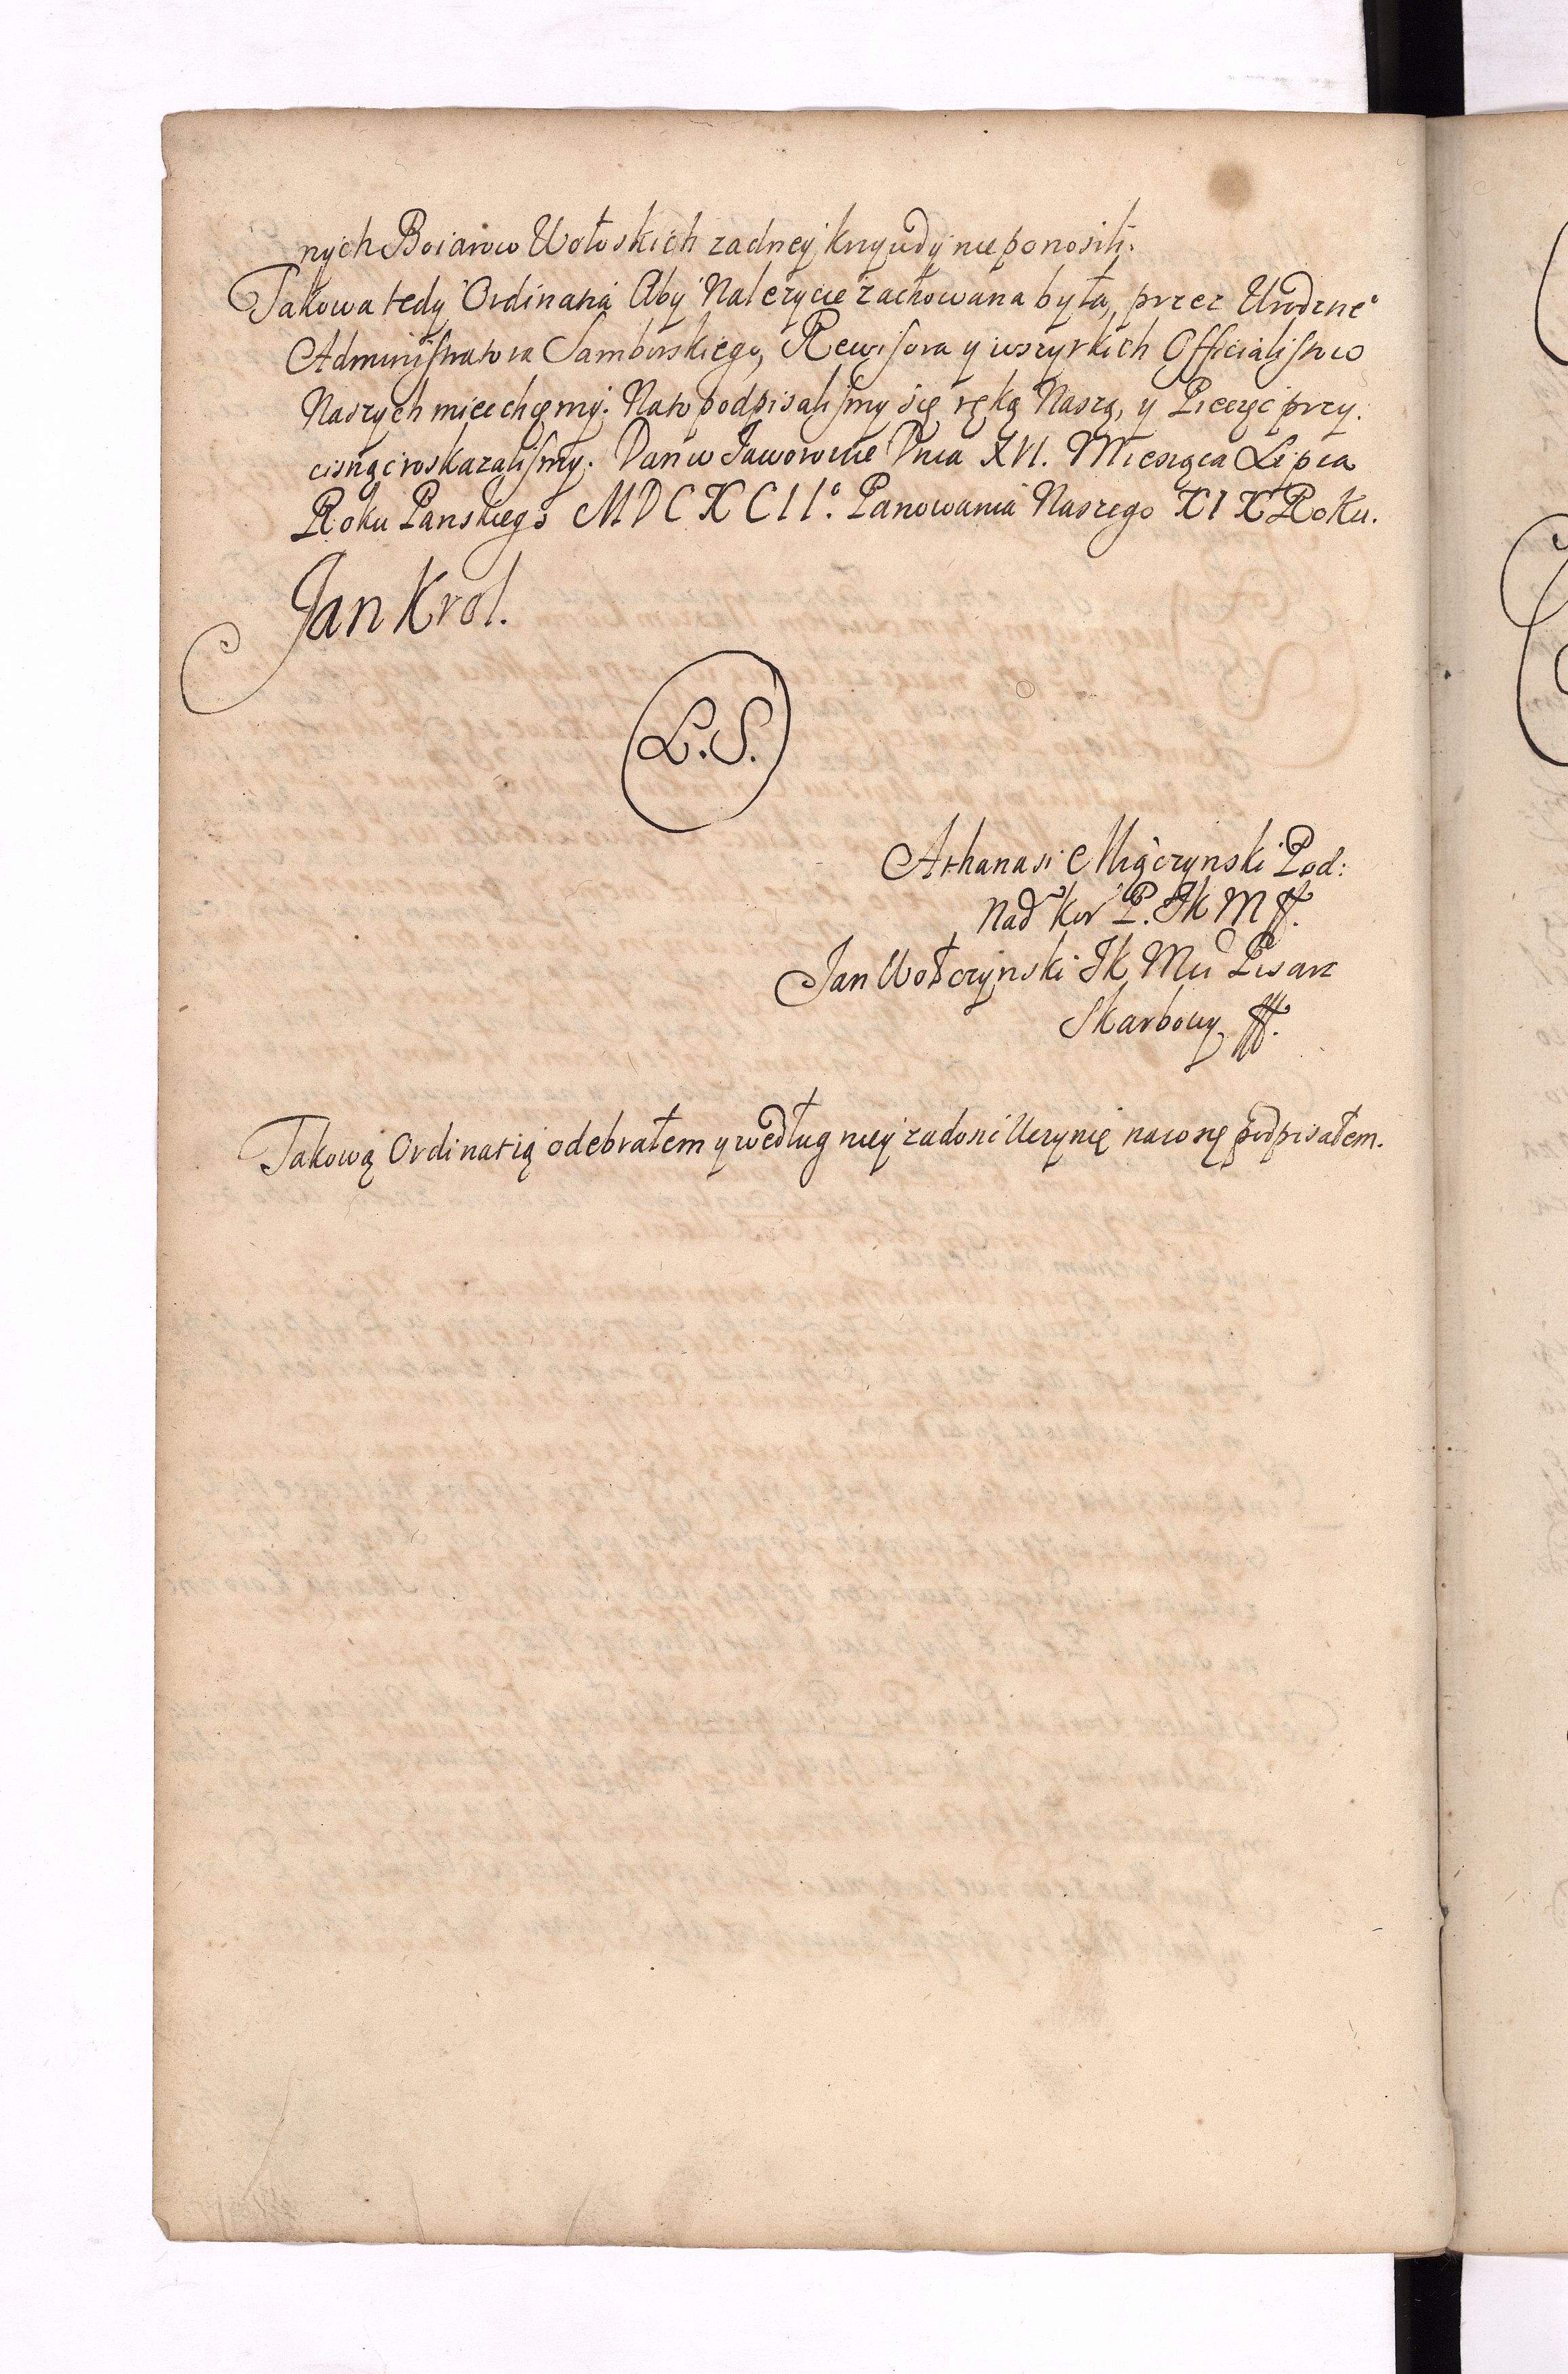 nych Boiarow Wołoskich zadney krzywdy nie ponosili.
Takowa tedy Ordinatia Aby Nalezycie zachowana była, przez Urodzne°
Administratora Samborskiego, Rewisora y wszytkich Officialistow
Naszych miec chcemy. Na to podpisalismy się ręką Naszą, y Pieczęć przy.
cisnąć roskazalismy. Dan w Jaworowie Dnia XVI. Miesiąca Lipca
Roku Panskiego MDCXCII°. Panowania Naszego XIX Roku.
Jan Krol.
L.S.
Athanasi Miączynski Pod:
Nad Kor P. JK M
Jan Wołczynski JK Mci Pisarz
Skarbowy
Takową Ordinatią odebrałem y według niey zadosić Uczynię na co się podpisałem.